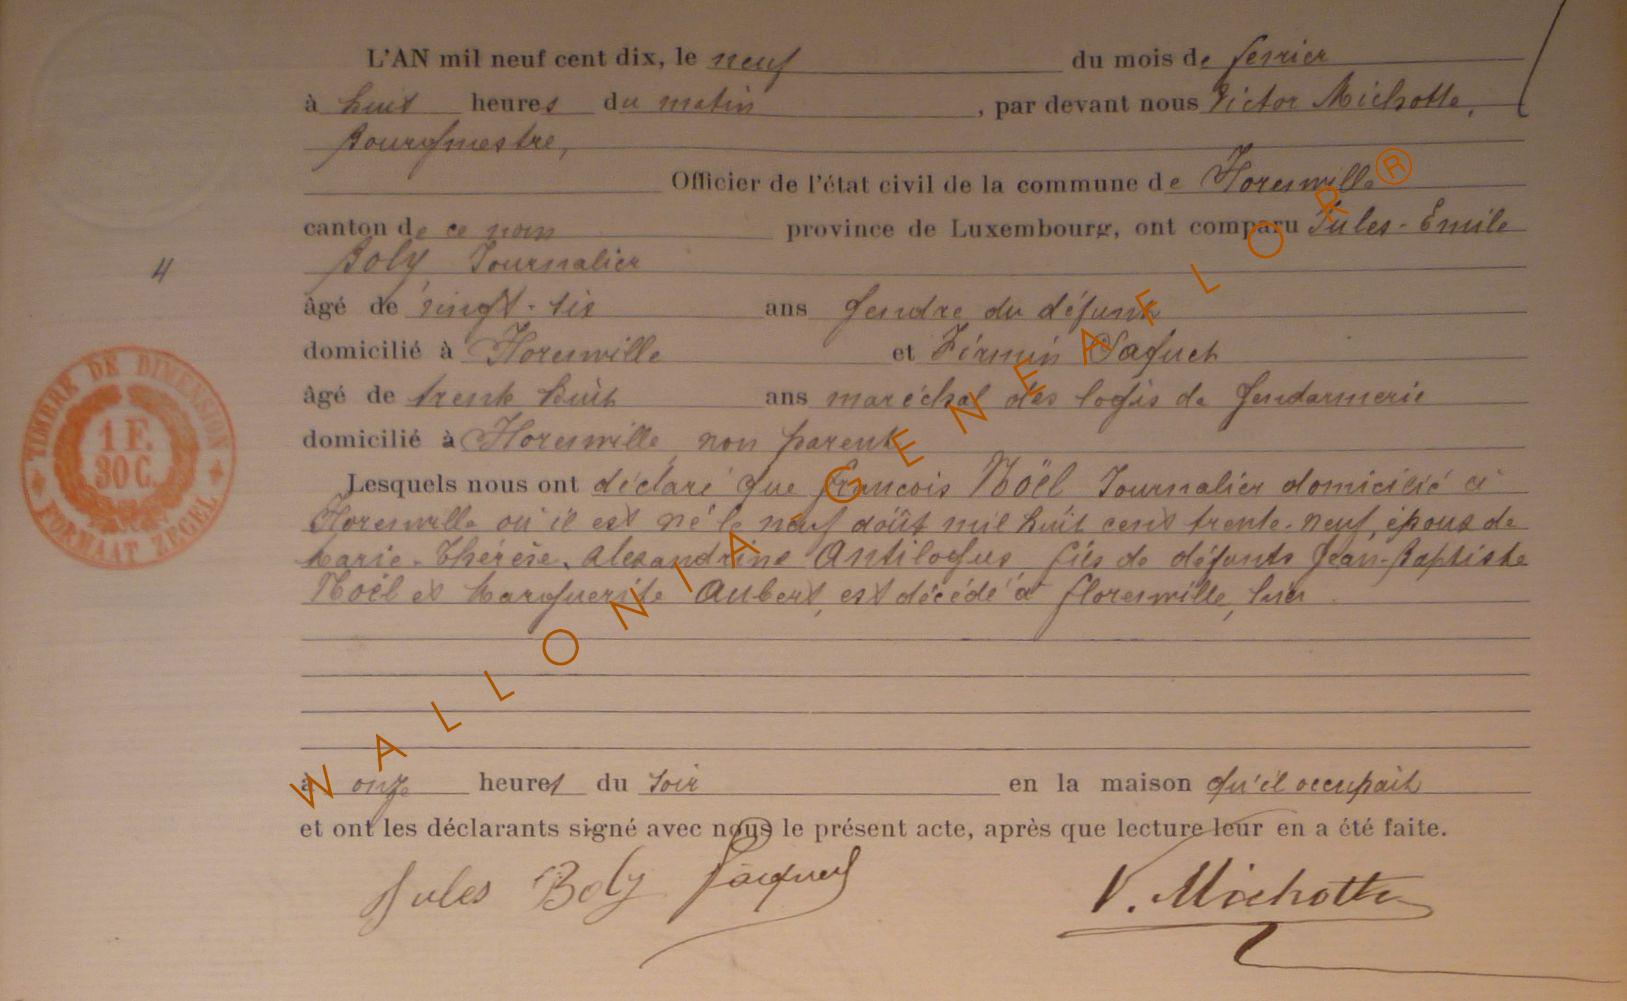 L'AN mil neuf cent dix, le neuf du mois de fevrier
à huit heures du matin, par devant nous Victor Michotte,
Bourgmestre,
Officier de l'état civil de la commune de Florenville
canton de ce nom province de Luxembourg, ont comparu Jules-Emile
Boly Journalier
4
âgé de vingt-six ans gendre du défunt
domicilié à Florenville et Firmin Paquet
âgé de trente huit ans maréchal des logis de gendarmerie
domicilié à Florenville, non parent
Lesquels nous ont déclaré que François Noël Journalier domicilié à
Florenville où il est né le neuf août mil huit cent trente-neuf, époux de
Marie-Thérèse, Alexandrine Antilogus, fils de défunts Jean-Baptiste
Noël et Marguerite Aubert, est décédé à florenville, hier
à onze heures du soir en la maison qu'il occupait
et ont les déclarants signé avec nous le présent acte, après que lecture leur en a été faite.
Jules Boly Paquet V. Michotte
TIMBRE DE DIMENSION
1 F.
30 C.
FORMAAT ZEGEL
WALLONIA-GENEAFLOR®